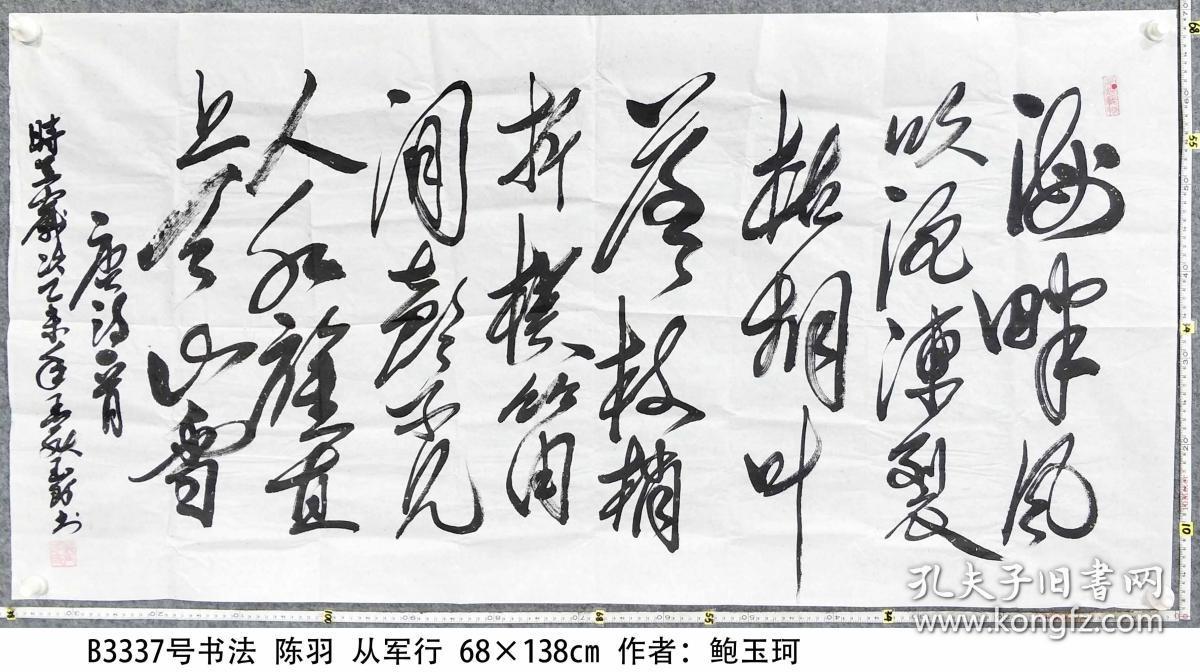 海畔风
吹泥凍裂
枯桐叶
落枝梢
折横笛
闻声不见
人红旗直
上天山雪
唐诗一首
時在歲次乙未年玉珂书
孔夫子旧书网
www.kongfz.com
B3337号书法 陈羽 从军行 68×138cm 作者：鲍玉珂